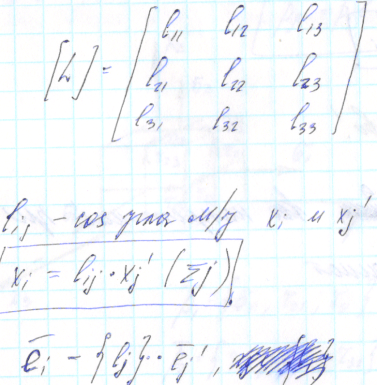 [L] = [ l₁₁ l₁₂ l₁₃
l₂₁ l₂₂ l₂₃
l₃₁ l₃₂ l₃₃ ]
lᵢⱼ – cos угла м/у xᵢ и xⱼ′
xᵢ = lᵢⱼ · xⱼ′ (Σj)
ēᵢ – {lⱼ} · ēⱼ′,